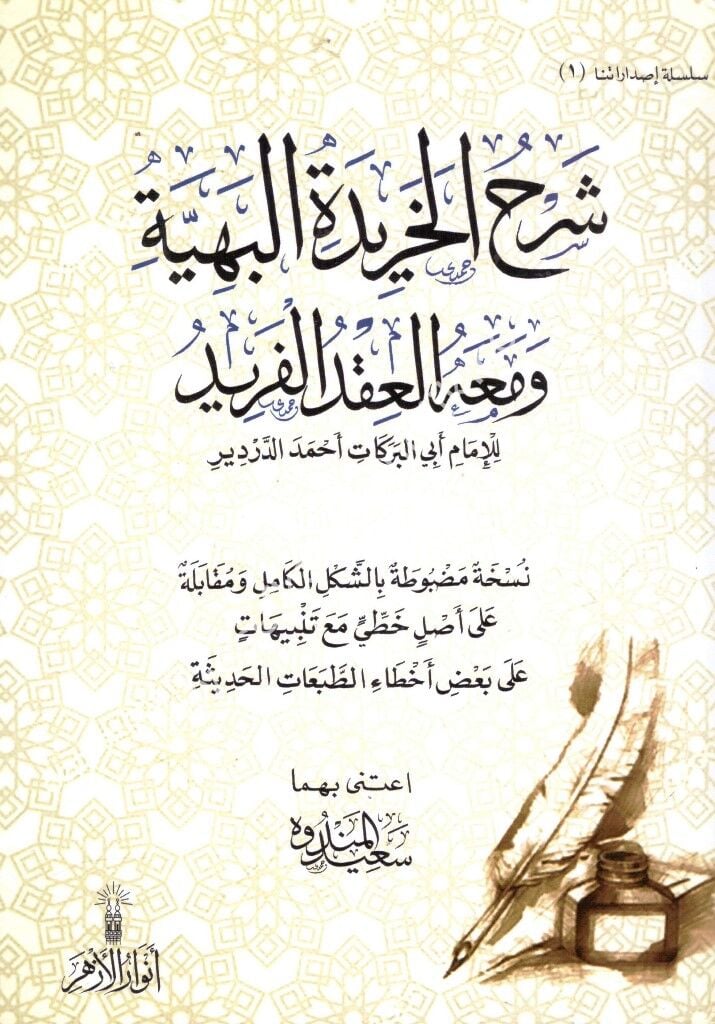 سلسلة إصداراتنا (١)
شَرْحُ الخَرِيدَةِ البَهِيَّةِ
وَمَعَهُ العِقْدُ الفَرِيدُ
لِلإِمَامِ أَبِي البَرَكَاتِ أَحْمَدَ الدَّرْدِيرِ
نُسْخَةٌ مَضْبُوطَةٌ بِالشَّكْلِ الكَامِلِ وَمُقَابَلَةٌ
عَلَى أَصْلٍ خَطِّيٍّ مَعَ تَنْبِيهَاتٍ
عَلَى بَعْضِ أَخْطَاءِ الطَّبَعَاتِ الحَدِيثَةِ
اعتنى بهما
سَعِيد المَنْدُوه
أَنْوَارُ الأَزْهَرِ